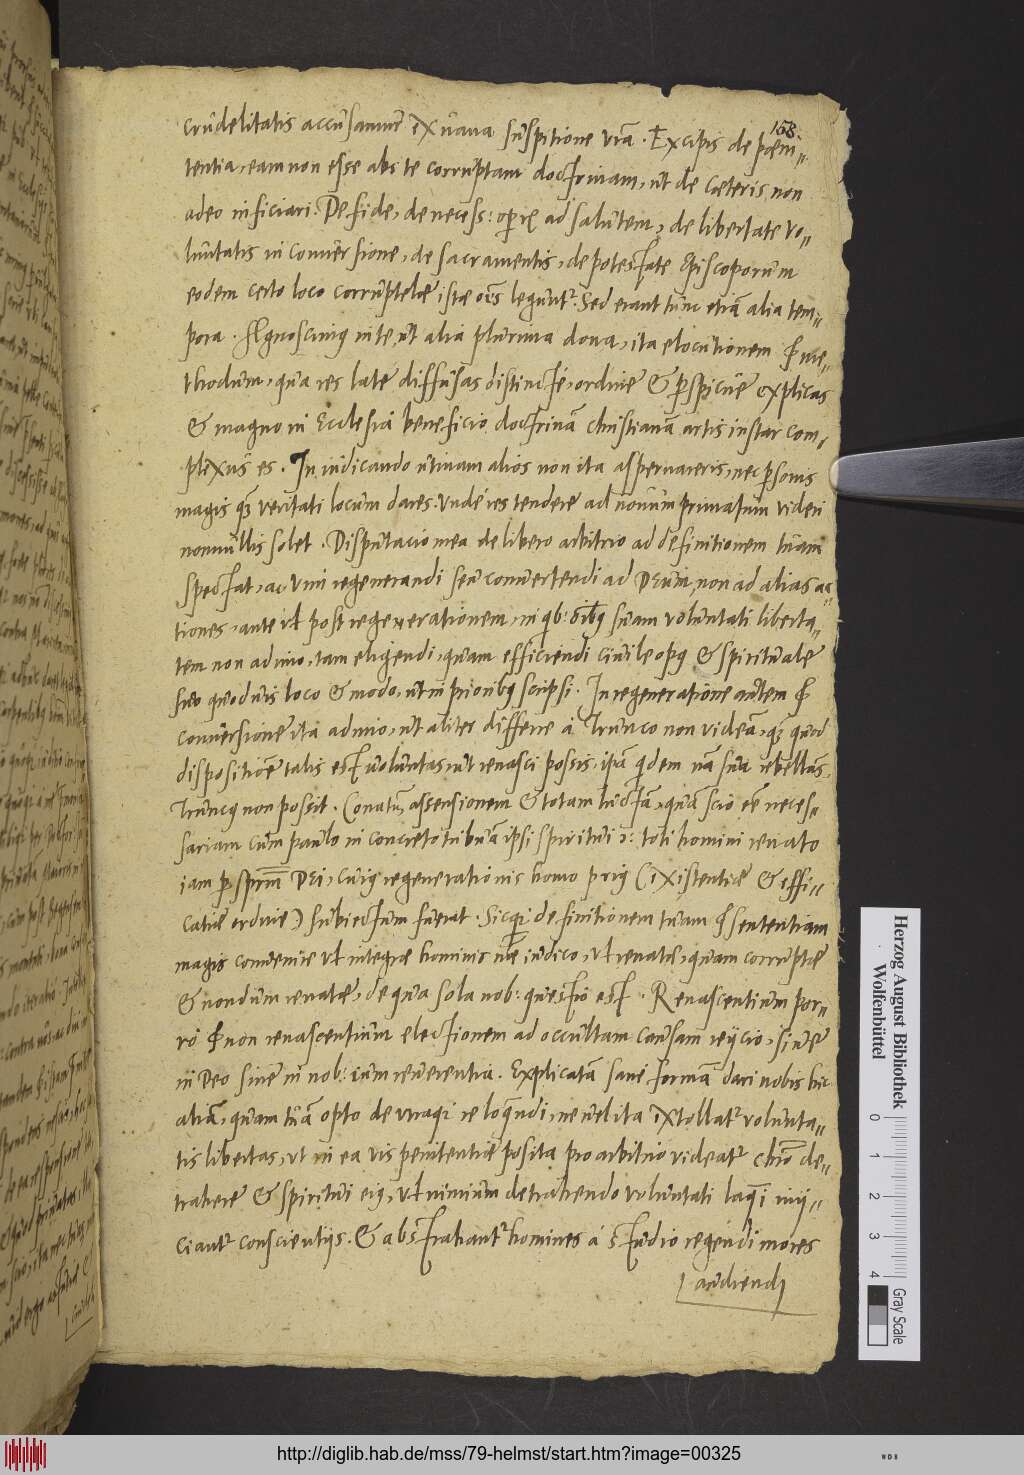 158.
crudelitatis accusamur ex vana suspitione vrã. Excipis de pœni-
tentia, eam non esse abs te corruptam doctrinam, ut de cæteris non
adeo inficiari. De fide, de necess: operũ ad salutem, de libertate vo-
luntatis in conversione, de sacramentis, de potestate Episcoporum
eodem certo loco corruptelæ istæ oẽs leguntr. Sed erant tunc etiã alia tem-
pora. Agnoscimus in te, ut alia plurima dona, ita elocutionem & me-
thodum, qua res late diffusas distincté, ordine & perspicue explicas
& magno in Ecclesia beneficio doctrinã christianã artis instar com-
plexus es. In iudicando utinam alios non ita aspernareris, nec personis
magis quam veritati locum dares. Unde res tendere ad novum primatum videri
nonnullis solet. Disputacio mea de libero arbitrio ad definitionem tuam
spectat, ac vim regenerandi seu convertendi ad Deum, non ad alias ac-
tiones, ante vel post regenerationem, in quib: oibus suam voluntati liberta-
tem non adimo, tam eligendi, quam efficiendi civile opus & spirituale
suo quoduis loco & modo, ut in prioribus scripsi. In regeneratione autem &
conversione ita adimo, ut aliter differre á trunco non videã, quam quod
dispositiõe talis est voluntas, ut renasci possit, ipã quidem nã sua rebellãs,
truncus non possit. Conatũ, assensionem & totam luctã, quã scio eẽ neces-
sariam cum paulo in concreto tribuã ipsi spiritui .i: toti homini renato
iam per sprm̃ Dei, cuius regenerationis homo prius (existentiæ & effi-
catiæ ordine) subiectum fuerat. Sicque definitionem tuam & sententiam
magis convenire vel integræ hominis næ iudico, vel renatæ, quam corruptæ
& nondum renatæ, de qua sola nob: quæstio est. Renascentium por-
ro & non renascentium electionem ad occultam causam reijcio, siue
in Deo siue in nob: cum reverentia. Explicatã sane formã dari nobis hic
aliã, quam tuã opto de utraque re loquendi, ne uel ita extollatr volunta-
tis libertas, ut in ea vis penitentiæ posita pro arbitrio videatr chro de-
trahere & spiritui eius, vel nimium detrahendo voluntati laquei inij-
ciantr conscientijs. & abstrahantr homines á studio regendi mores
audiendi
Herzog August Bibliothek
Wolfenbüttel
0 1 2 3 4
Gray Scale
http://diglib.hab.de/mss/79-helmst/start.htm?image=00325